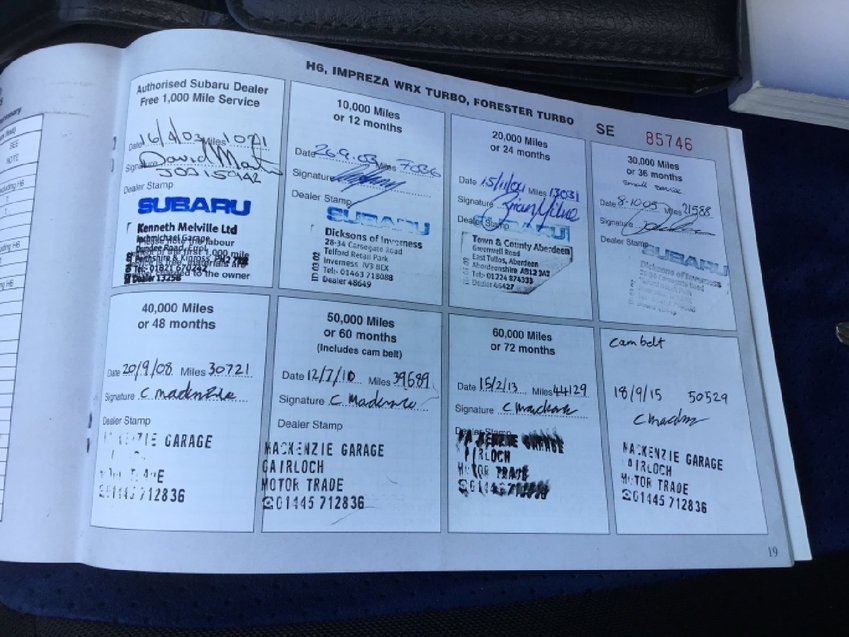 H6, IMPREZA WRX TURBO, FORESTER TURBO
SE 85746
Authorised Subaru Dealer
Free 1,000 Mile Service
Date 16/4/03 Miles 1021
Signature David Martin
Dealer Stamp
SUBARU
Kenneth Melville Ltd
Inchmichael Garage
Dundee Road, Errol
Perthshire & Kinross
Tel: 01821 670242
Dealer 13258
10,000 Miles
or 12 months
Date 26.9.03 Miles 7036
Signature
Dealer Stamp
SUBARU
Dicksons of Inverness
28-34 Carsegate Road
Telford Retail Park
Inverness IV3 8EX
Tel: 01463 718088
Dealer 48649
20,000 Miles
or 24 months
Date 15/11/04 Miles 13031
Signature
Dealer Stamp
SUBARU
Town & County Aberdeen
Greenwell Road
East Tullos, Aberdeen
Aberdeenshire AB12 3AX
Tel: 01224 874333
Dealer 46427
30,000 Miles
or 36 months
small service
Date 8.10.05 Miles 21588
Signature
Dealer Stamp
SUBARU
Dicksons of Inverness
28-34 Carsegate Road
40,000 Miles
or 48 months
Date 20/9/08 Miles 30721
Signature C Mackenzie
Dealer Stamp
KENZIE GARAGE
TRADE
01445 712836
50,000 Miles
or 60 months
(Includes cam belt)
Date 12/7/10 Miles 39689
Signature C Mackenzie
Dealer Stamp
MACKENZIE GARAGE
GAIRLOCH
MOTOR TRADE
01445 712836
60,000 Miles
or 72 months
Date 15/2/13 Miles 44129
Signature C Mackenzie
Dealer Stamp
MACKENZIE GARAGE
AIRLOCH
MOTOR TRADE
01445 712836
Cambelt
18/9/15 50529
C Mackenzie
MACKENZIE GARAGE
AIRLOCH
MOTOR TRADE
01445 712836
19